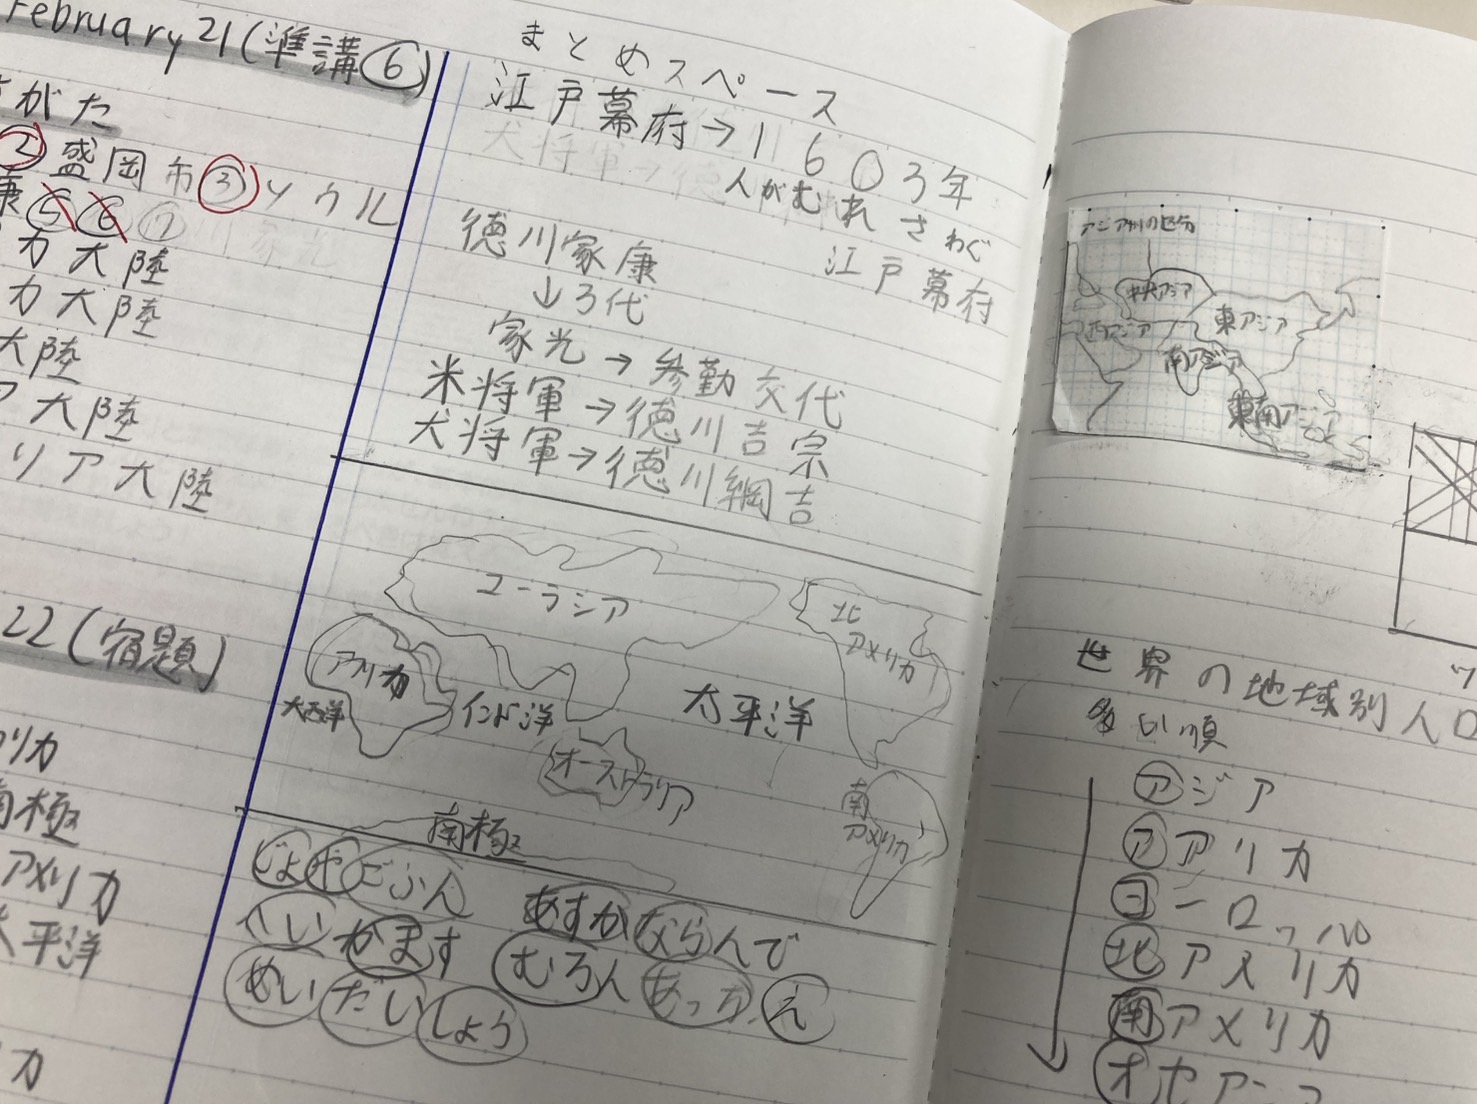 February 21(準講⑥)
がた
②盛岡市③ソウル
康⑤⑥⑦
カ大陸
カ大陸
大陸
ア大陸
リア大陸
22(宿題)
リカ
南極
アメリカ
太平洋
カ
まとめスペース
江戸幕府→1603年
人がむれさわぐ
江戸幕府
徳川家康
↓3代
家光→参勤交代
米将軍→徳川吉宗
犬将軍→徳川綱吉
ユーラシア
北
アメリカ
アフリカ
大西洋
インド洋
太平洋
オーストラリア
南
アメリカ
南極
じょやごふん
あすかならんで
へいかます
むろんあっちえ
めいだいしょう
アジア州の区分
中央アジア
西アジア
東アジア
南アジア
東南アジア
世界の地域別人口
多い順
アジア
アフリカ
ヨーロッパ
北アメリカ
南アメリカ
オセアニア